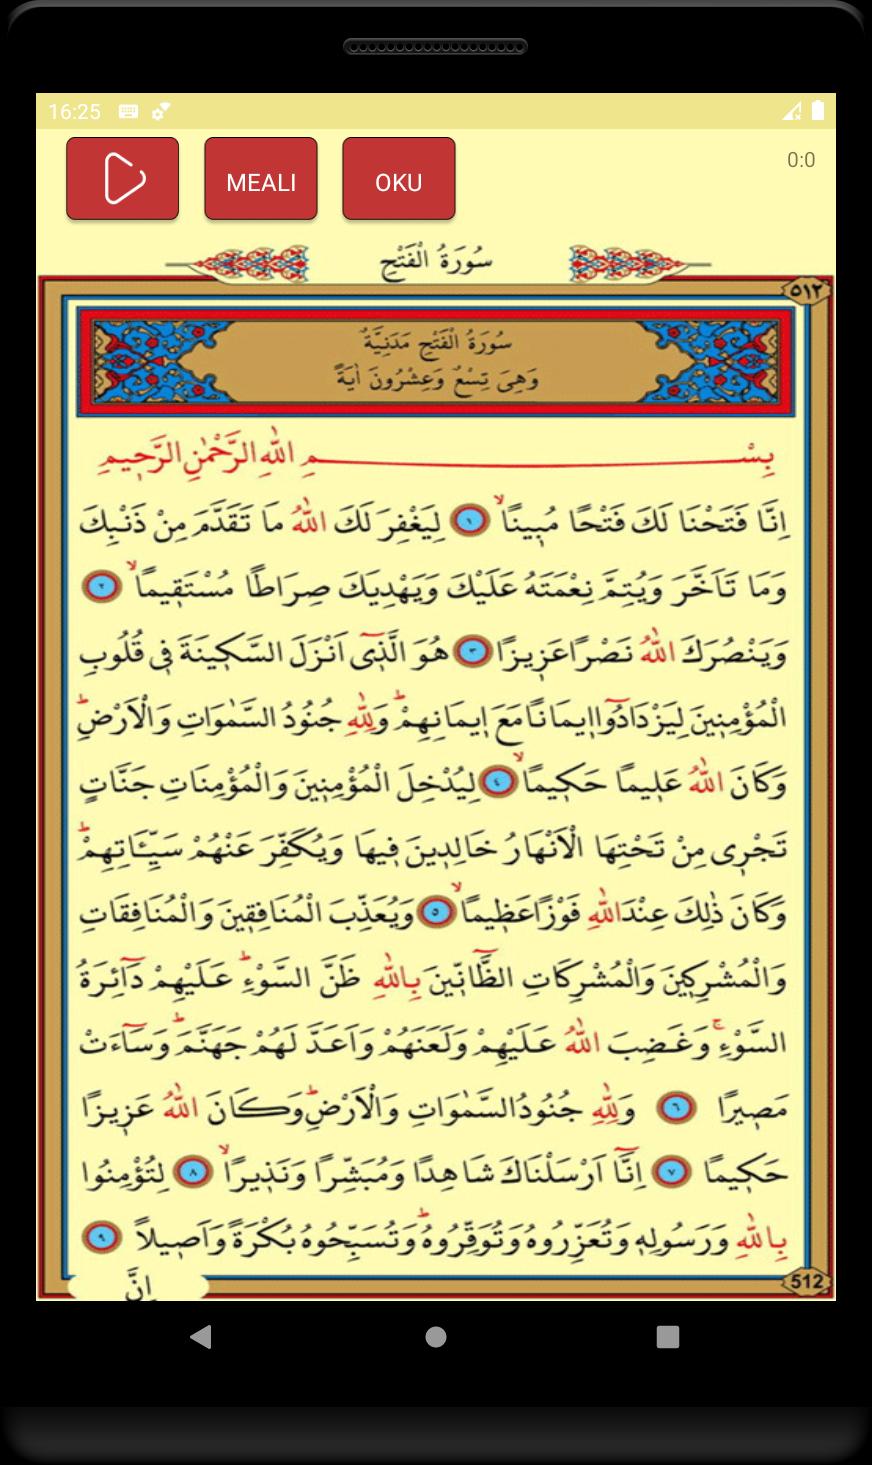 16:25
MEALI
OKU
0:0
سُورَةُ الْفَتْحِ
٥١٢
سُورَةُ الْفَتْحِ مَدَنِيَّةٌ
وَهِىَ تِسْعٌ وَعِشْرُونَ اٰيَةً
بِسْمِ اللّٰهِ الرَّحْمٰنِ الرَّحٖيمِ
اِنَّا فَتَحْنَا لَكَ فَتْحًا مُبٖينًاۙ ١ لِيَغْفِرَ لَكَ اللّٰهُ مَا تَقَدَّمَ مِنْ ذَنْبِكَ
وَمَا تَاَخَّرَ وَيُتِمَّ نِعْمَتَهُ عَلَيْكَ وَيَهْدِيَكَ صِرَاطًا مُسْتَقٖيمًاۙ ٢
وَيَنْصُرَكَ اللّٰهُ نَصْرًا عَزٖيزًا ٣ هُوَ الَّذٖٓى اَنْزَلَ السَّكٖينَةَ فٖى قُلُوبِ
الْمُؤْمِنٖينَ لِيَزْدَادُٓوا اٖيمَانًا مَعَ اٖيمَانِهِمْؕ وَلِلّٰهِ جُنُودُ السَّمٰوَاتِ وَالْاَرْضِؕ
وَكَانَ اللّٰهُ عَلٖيمًا حَكٖيمًاۙ ٤ لِيُدْخِلَ الْمُؤْمِنٖينَ وَالْمُؤْمِنَاتِ جَنَّاتٍ
تَجْرٖى مِنْ تَحْتِهَا الْاَنْهَارُ خَالِدٖينَ فٖيهَا وَيُكَفِّرَ عَنْهُمْ سَيِّـَٔاتِهِمْؕ
وَكَانَ ذٰلِكَ عِنْدَ اللّٰهِ فَوْزًا عَظٖيمًاۙ ٥ وَيُعَذِّبَ الْمُنَافِقٖينَ وَالْمُنَافِقَاتِ
وَالْمُشْرِكٖينَ وَالْمُشْرِكَاتِ الظَّٓانّٖينَ بِاللّٰهِ ظَنَّ السَّوْءِؕ عَلَيْهِمْ دَٓائِرَةُ
السَّوْءِۚ وَغَضِبَ اللّٰهُ عَلَيْهِمْ وَلَعَنَهُمْ وَاَعَدَّ لَهُمْ جَهَنَّمَؕ وَسَٓاءَتْ
مَصٖيرًا ٦ وَلِلّٰهِ جُنُودُ السَّمٰوَاتِ وَالْاَرْضِؕ وَكَانَ اللّٰهُ عَزٖيزًا
حَكٖيمًا ٧ اِنَّٓا اَرْسَلْنَاكَ شَاهِدًا وَمُبَشِّرًا وَنَذٖيرًاۙ ٨ لِتُؤْمِنُوا
بِاللّٰهِ وَرَسُولِهٖ وَتُعَزِّرُوهُ وَتُوَقِّرُوهُؕ وَتُسَبِّحُوهُ بُكْرَةً وَاَصٖيلاً ٩
اِنَّ
512